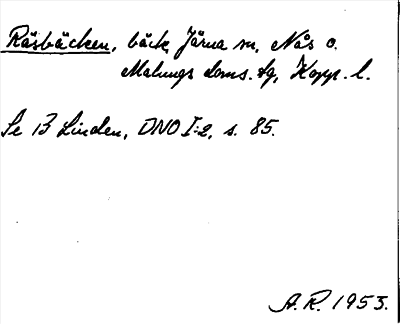 Råsbäcken, bäck, Järna sn, Nås o.
Malungs doms. tg, Kopp. l.
Se B Linden, DNO I:2, s. 85.
A. R. 1953.